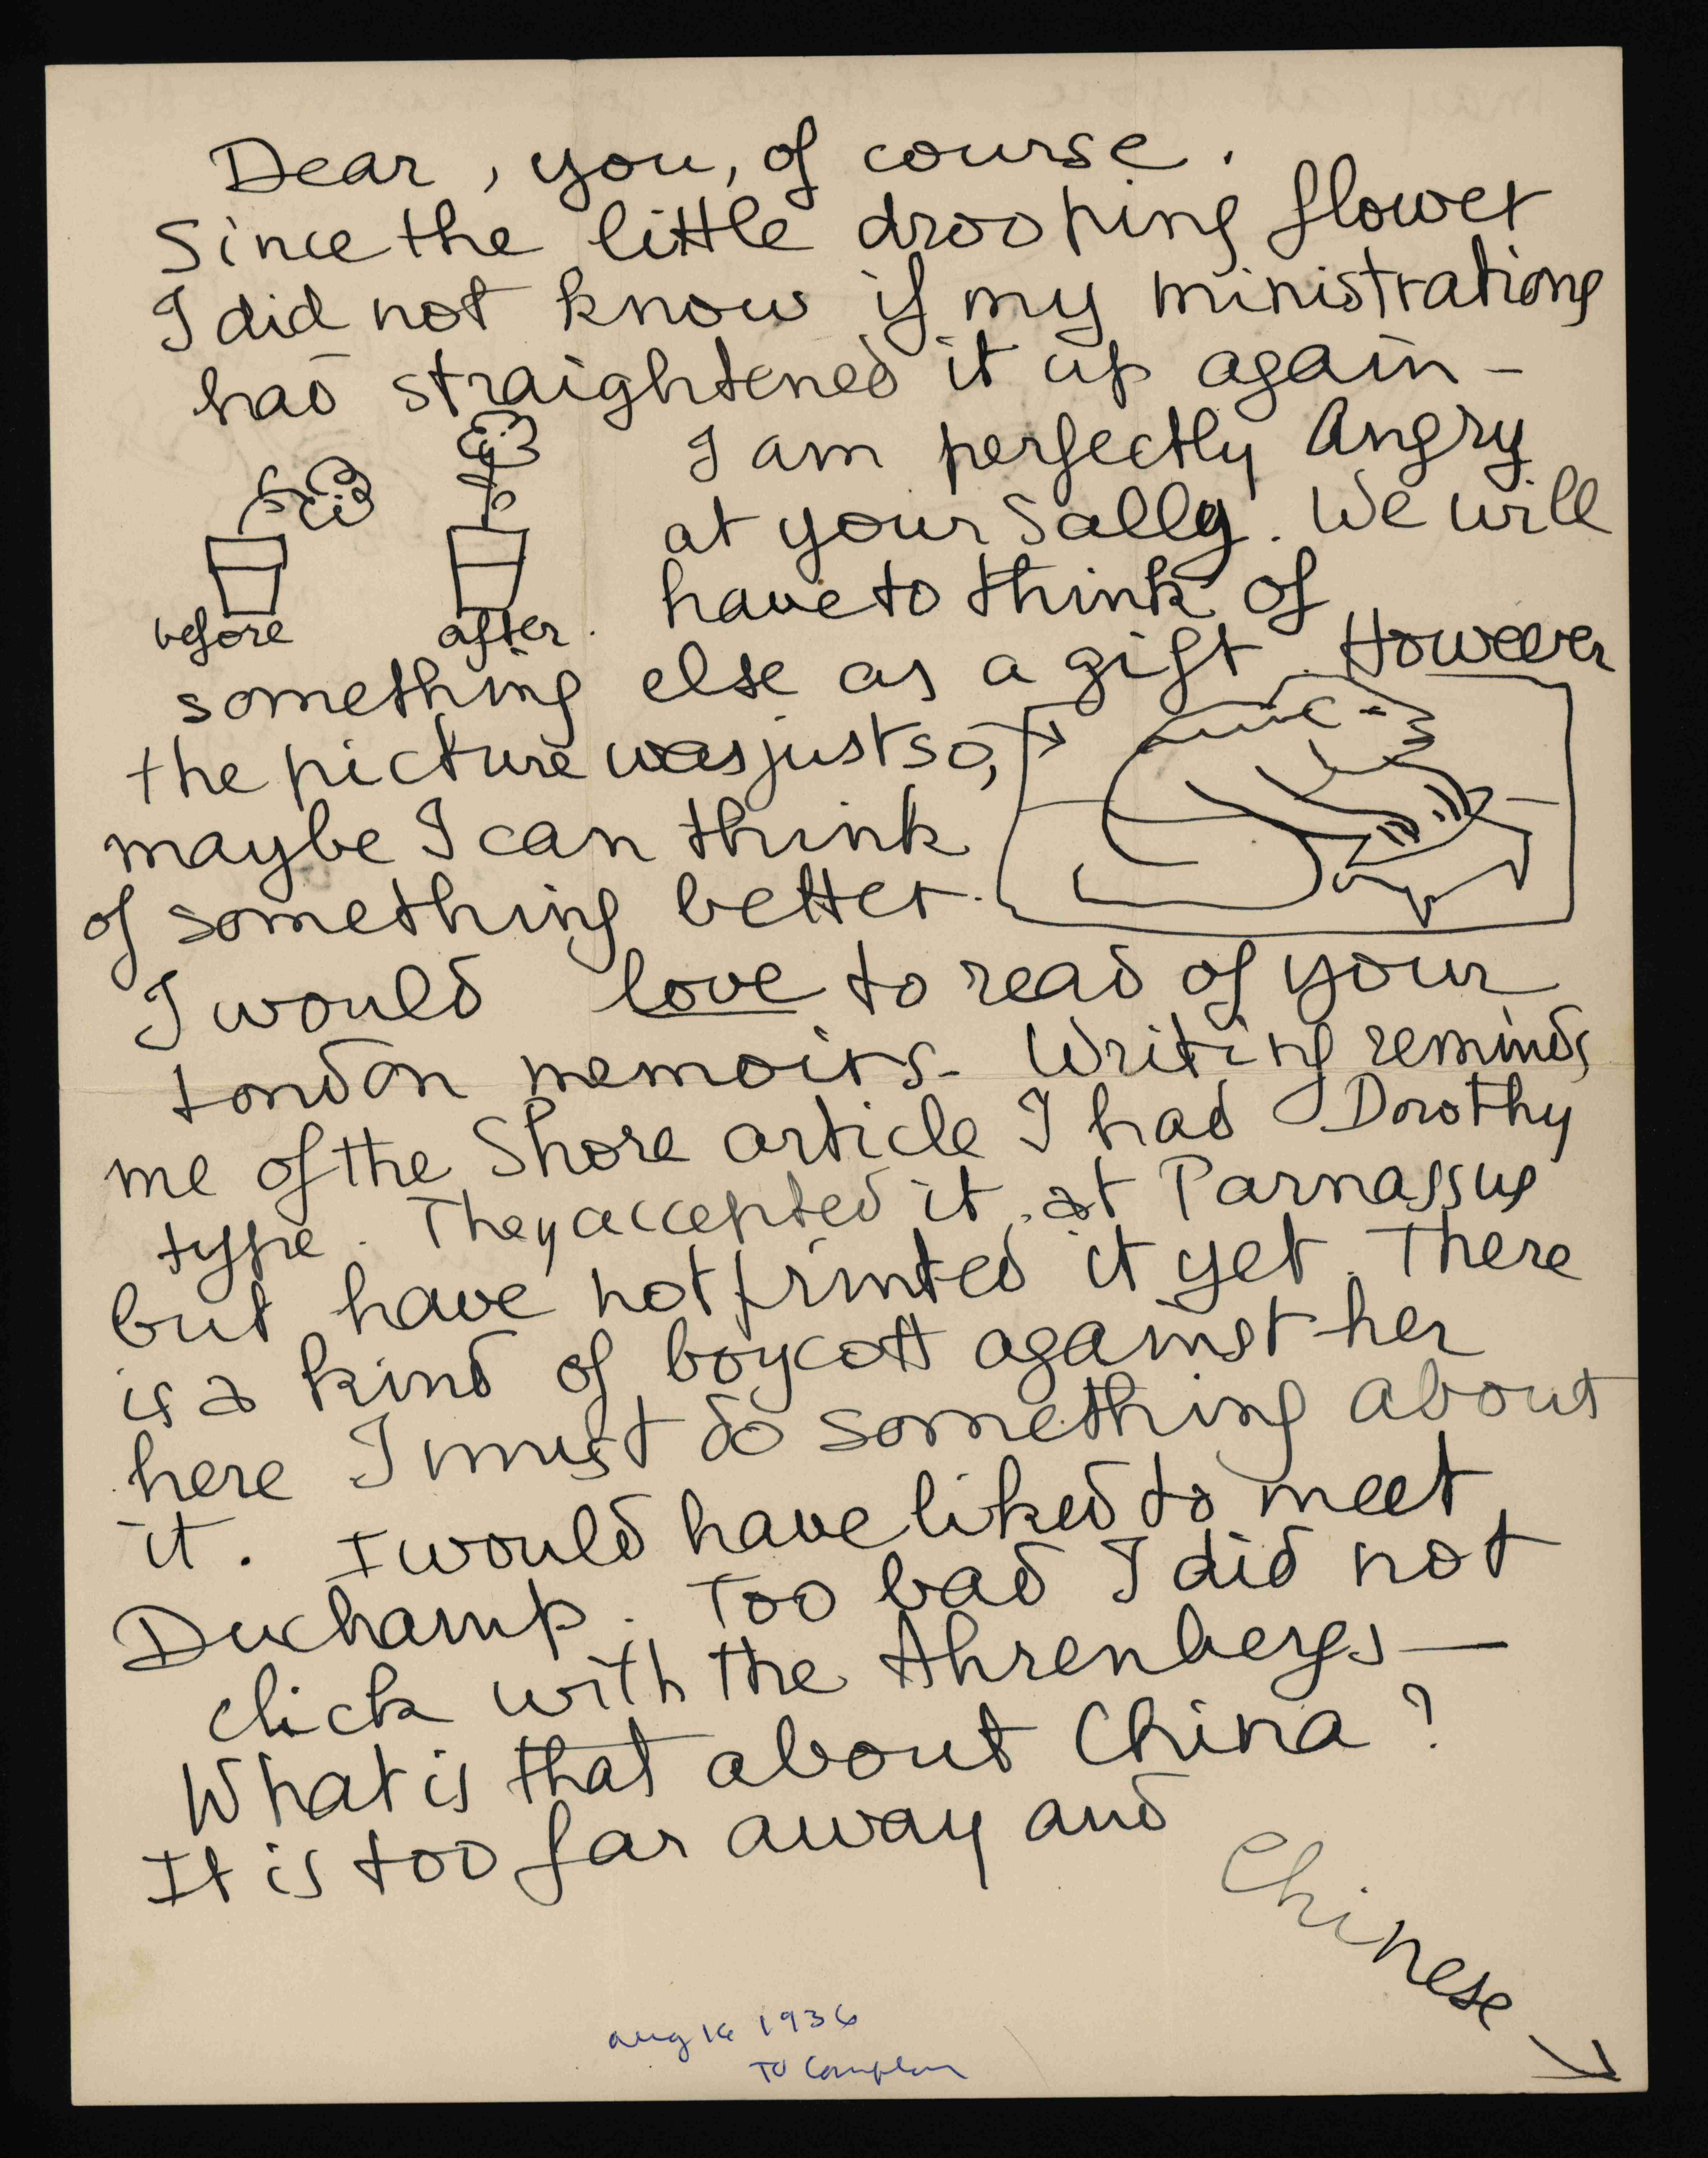 Dear, you, of course.
Since the little drooping flower
I did not know if my ministrations
had straightened it up again -
I am perfectly Angry
at your Sally. We will
have to think of
before after.
something else as a gift. However
the picture was just so,
maybe I can think
of something better.
I would love to read of your
London memoirs. Writing reminds
me of the Shore article I had Dorothy
type. They accepted it at Parnassus
but have not printed it yet. There
is a kind of boycott against her
here I must do something about
it. I would have liked to meet
Duchamp. Too bad I did not
click with the Ahrenbergs—
What is that about China?
It is too far away and
Chinese
aug 16 1936
TO